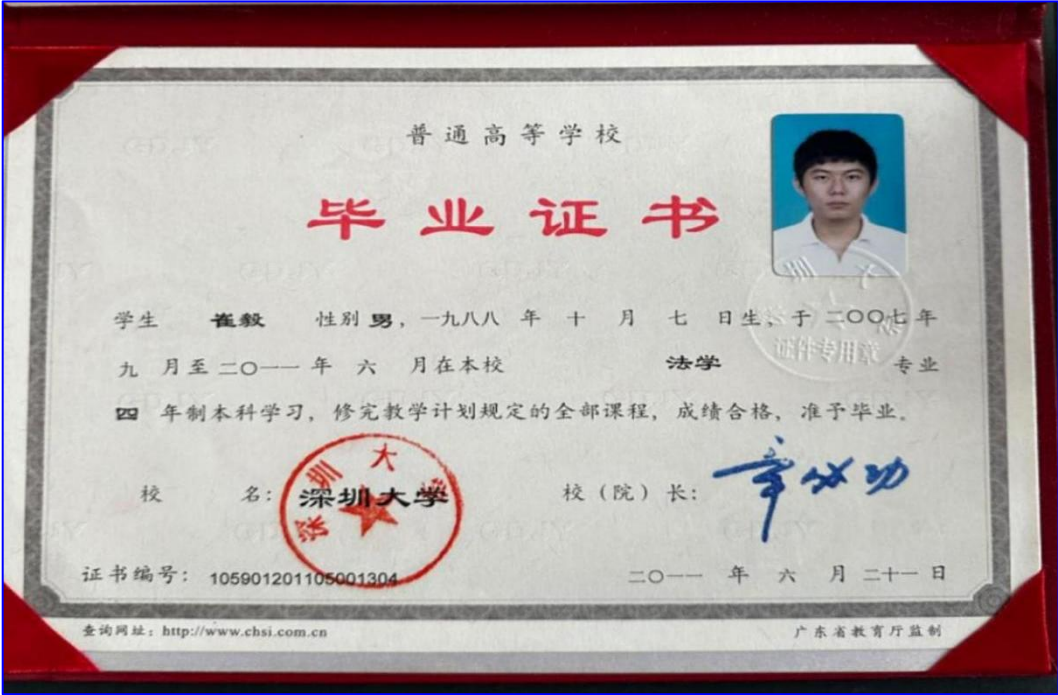 普通高等学校
毕业证书
学生 崔毅 性别 男，一九八八 年 十 月 七 日生，于 二〇〇七 年
九 月至 二〇一一 年 六 月在本校 法学 专业
四 年制本科学习，修完教学计划规定的全部课程，成绩合格，准予毕业。
证件专用章
校 名：深圳大学 校（院）长：章必功
深圳大学
证书编号：105901201105001304 二〇一一 年 六 月 二十一 日
查询网址：http://www.chsi.com.cn 广东省教育厅监制